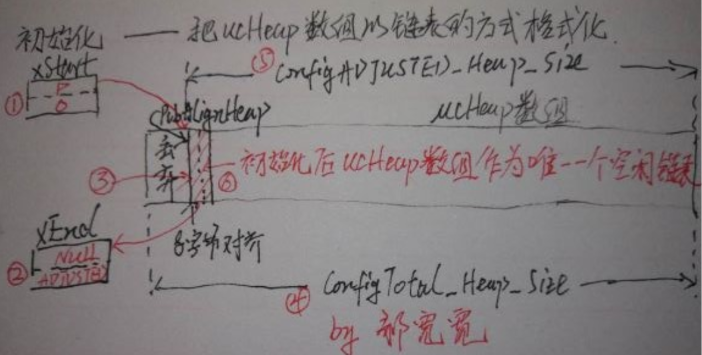 初始化 —— 把ucHeap数组以链表的方式格式化.
xStart
⑤ Config ADJUSTED_Heap_Size
①
P
0
pucAlignHeap
ucHeap数组
丢弃
③
⑥ 初始化后ucHeap数组作为唯一一个空闲链表
xEnd
8字节对齐
②
NULL
ADJUSTED
④ Config Total_Heap_Size
by 郭宽宽